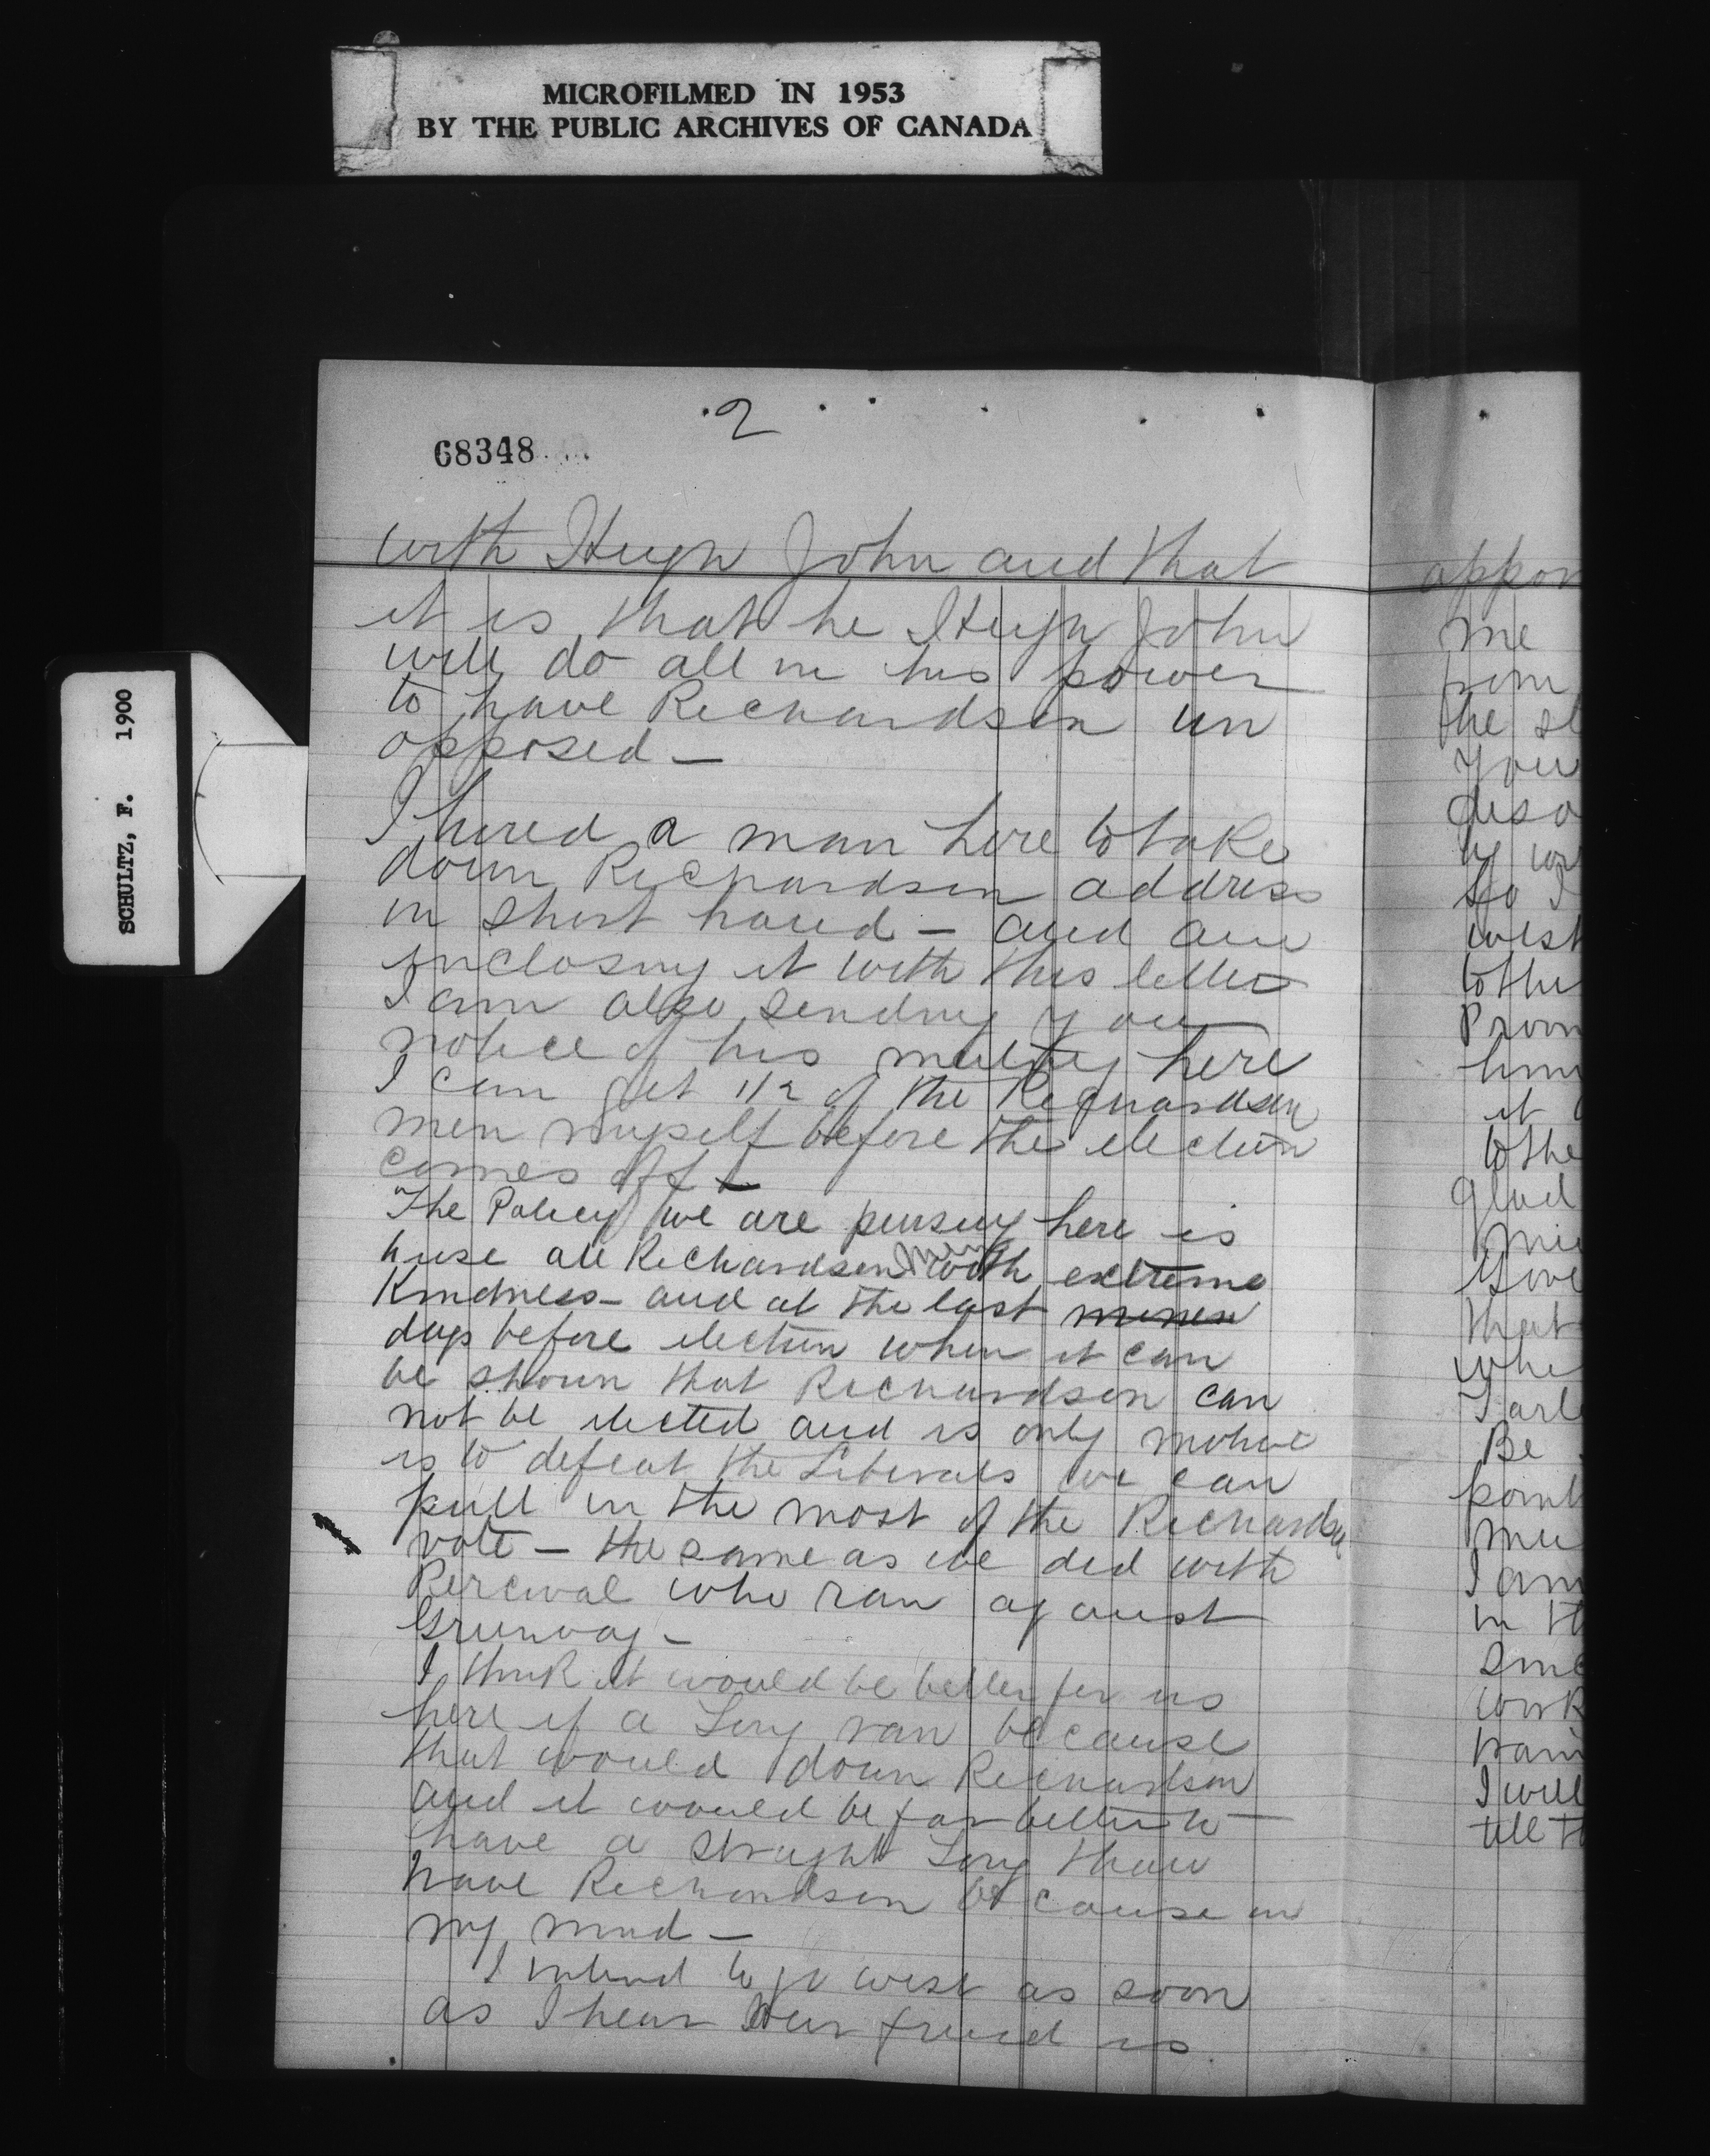 MICROFILMED IN 1953
BY THE PUBLIC ARCHIVES OF CANADA
SCHULTZ, F. 1900
2
68348
with Hugh John and that
it is that he Hugh John
will do all in his power
to have Richardson un
opposed —
I hired a man here to take
down Richardson address
in short hand — and am
inclosing it with this letter
I am also sending you
notice of his meeting here
I can get 1/2 of the Richardson
men myself before the election
comes off —
The Policy we are pursuing here is
to use all Richardson men with extreme
Kindness — and at the last
days before election when it can
be shown that Richardson can
not be elected and is only motive
is to defeat the Liberals we can
pull in the most of the Richardson
vote — the same as we did with
Percival who ran against
Grunway —
I think it would be better for us
here if a Tory ran because
that would down Richardson
and it would be far better to
have a straight Tory than
have Richardson because in
my mind —
I intend to go west as soon
as I hear our friend is
oppon
me
the
You
by
So I
west
to the
Prov
him
it
to the
glad
Gove
that
whe
Tarl
Be
point
I am
in th
work
I will
till th